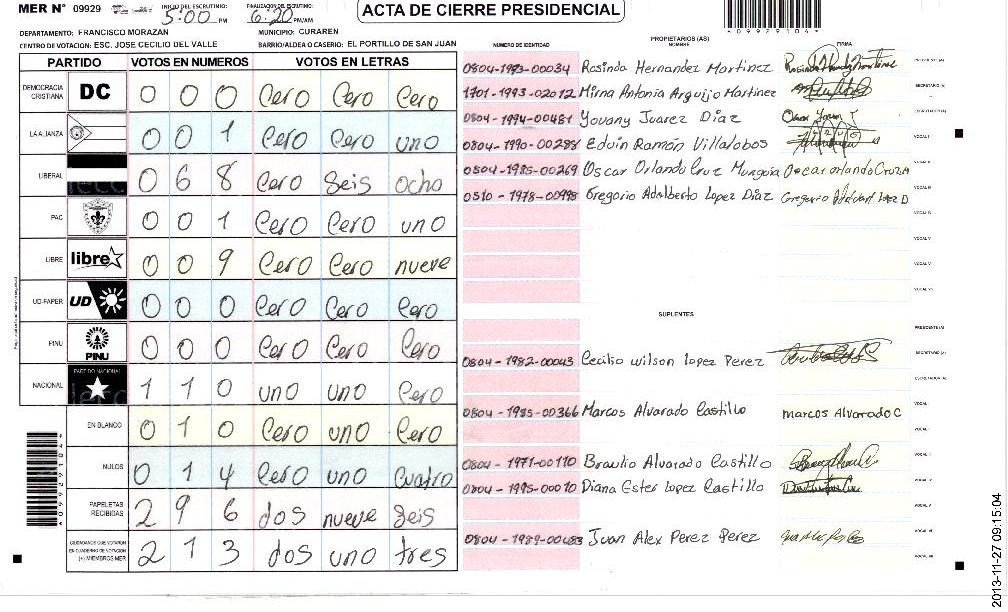 MER N° 09929 INICIO DEL ESCRUTINIO: 5:00 PM FINALIZACION DEL ESCRUTINIO: 6:20 PM/AM
ACTA DE CIERRE PRESIDENCIAL
A09929104A
DEPARTAMENTO: FRANCISCO MORAZAN MUNICIPIO: CURAREN
CENTRO DE VOTACION: ESC. JOSE CECILIO DEL VALLE BARRIO/ALDEA O CASERIO: EL PORTILLO DE SAN JUAN
PARTIDO VOTOS EN NUMEROS VOTOS EN LETRAS
DEMOCRACIA CRISTIANA DC 0 0 0 Cero Cero Cero
LA ALIANZA 0 0 1 Cero Cero uno
LIBERAL 0 6 8 Cero Seis ocho
PAC 0 0 1 Cero Cero uno
LIBRE libre 0 0 9 Cero Cero nueve
UD-FAPER UD 0 0 0 Cero Cero Cero
PINU PINU 0 0 0 Cero Cero Cero
NACIONAL PARTIDO NACIONAL 1 1 0 uno uno Cero
EN BLANCO 0 1 0 Cero uno Cero
NULOS 0 1 4 Cero uno Cuatro
PAPELETAS RECIBIDAS 2 9 6 dos nueve Seis
CIUDADANOS QUE VOTARON EN CUADERNO DE VOTACION (+) MIEMBROS MER 2 1 3 dos uno tres
A09929104A
PROPIETARIOS (AS)
NUMERO DE IDENTIDAD NOMBRE FIRMA
0804-1993-00034 Rosinda Hernandez Martinez PRESIDENTE (A)
1701-1993-02012 Mirna Antonia Arguijo Martinez SECRETARIO (A)
0804-1994-00481 Yovany Juarez Diaz ESCRUTADOR (A)
0804-1990-00288 Edvin Ramón Villalobos VOCAL I
0804-1985-00269 Oscar Orlando Cruz Munguia Oscar orlando Cruz M VOCAL II
0510-1978-00998 Gregorio Adalberto Lopez Diaz VOCAL III
VOCAL IV
VOCAL V
VOCAL VI
VOCAL VII
SUPLENTES
PRESIDENTE (A)
0804-1982-00043 Cecilio wilson lopez Perez SECRETARIO (A)
ESCRUTADOR (A)
0804-1985-00366 Marcos Alvarado Castillo marcos Alvarado C
0804-1971-00110 Braulio Alvarado Castillo
0804-1995-00070 Diana Ester lopez Castillo
0804-1989-00483 Juan Alex Perez Perez
2013-11-27 09:15:04